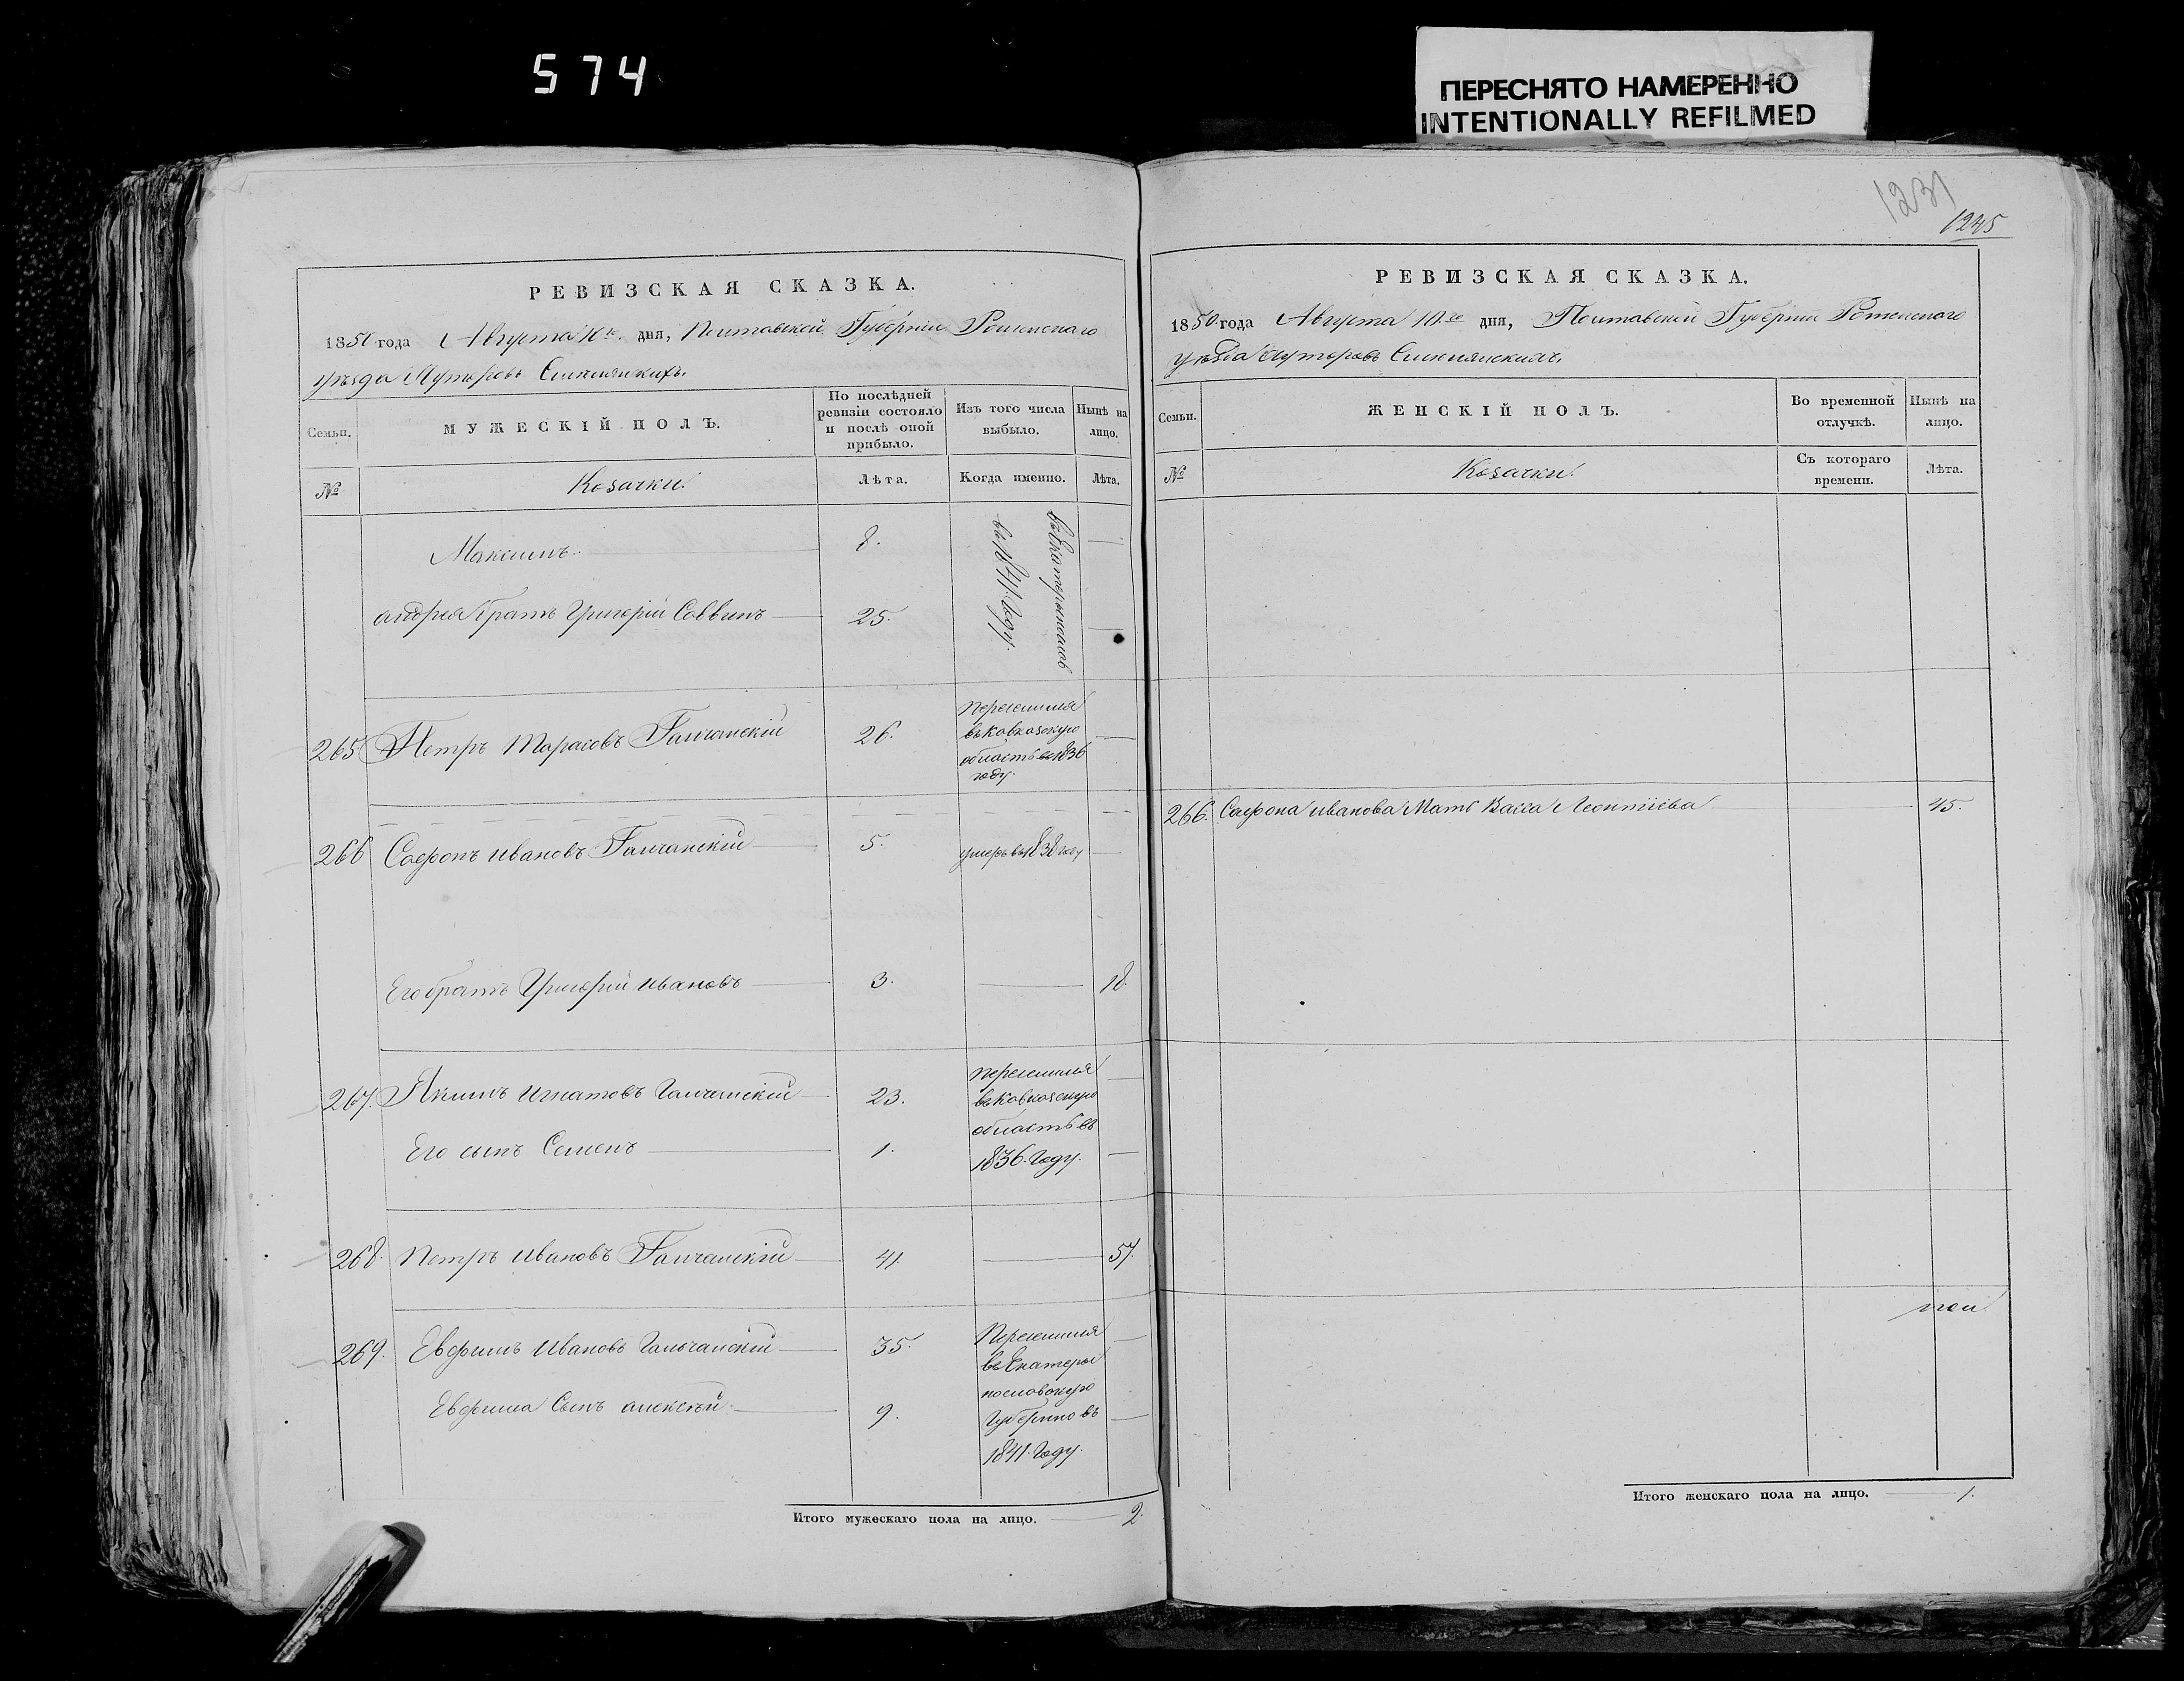 574
ПЕРЕСНЯТО НАМЕРЕННО
INTENTIONALLY REFILMED
1231
1245
РЕВИЗСКАЯ СКАЗКА.
1850 года Августа 10го дня, Полтавской Губерніи Роменскаго
уѣзда Хуторовъ
Семьи.
МУЖЕСКІЙ ПОЛЪ.
По послѣдней ревизіи состояло и послѣ оной прибыло.
Изъ того числа выбыло.
Нынѣ на лицо.
№
Козачки.
Лѣта.
Когда именно.
Лѣта.
Максимъ 8.
Андрея братъ Григорій Саввинъ 25.
въ 1841 году.
265 Петръ Тарасовъ Галчанскій 26. переселился
въ Кавказскую
область въ 1836
году.
266 Сафронъ Ивановъ Галчанскій 5. умеръ въ 1838 году
Его братъ Григорій Ивановъ 3. 18.
267. Якимъ Игнатовъ Галчанскій 23. переселился
въ Кавказскую
область въ
Его сынъ Семенъ 1. 1836. Году.
268. Петръ Ивановъ Галчанскій 41. 57.
269. Евфимъ Ивановъ Гальчанскій 35. Переселился
въ Екатери
нославскую
Евфима Сынъ Алексѣй 9. Губернію въ
1841. Году.
Итого мужескаго пола на лицо. 2.
РЕВИЗСКАЯ СКАЗКА.
1850 года Августа 10.го дня, Полтавской Губерніи Роменскаго
уѣзда Хуторовъ
Семьи.
ЖЕНСКІЙ ПОЛЪ.
Во временной отлучкѣ.
Нынѣ на лицо.
№
Козачки.
Съ котораго времени.
Лѣта.
266. Сафрона Иванова Мать Васса Леонтіева 45.
Итого женскаго пола на лицо. 1.